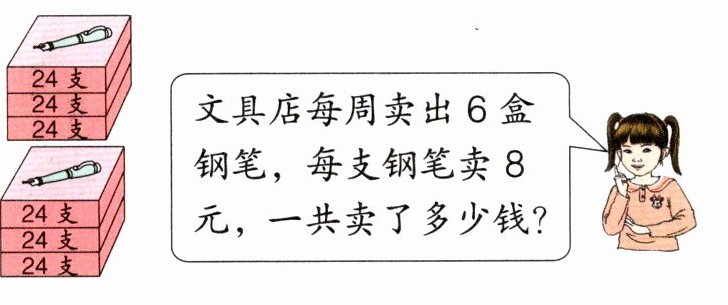 24 支
24 支
24 支
24 支
24 支
24 支
文具店每周卖出 6 盒
钢笔，每支钢笔卖 8
元，一共卖了多少钱？